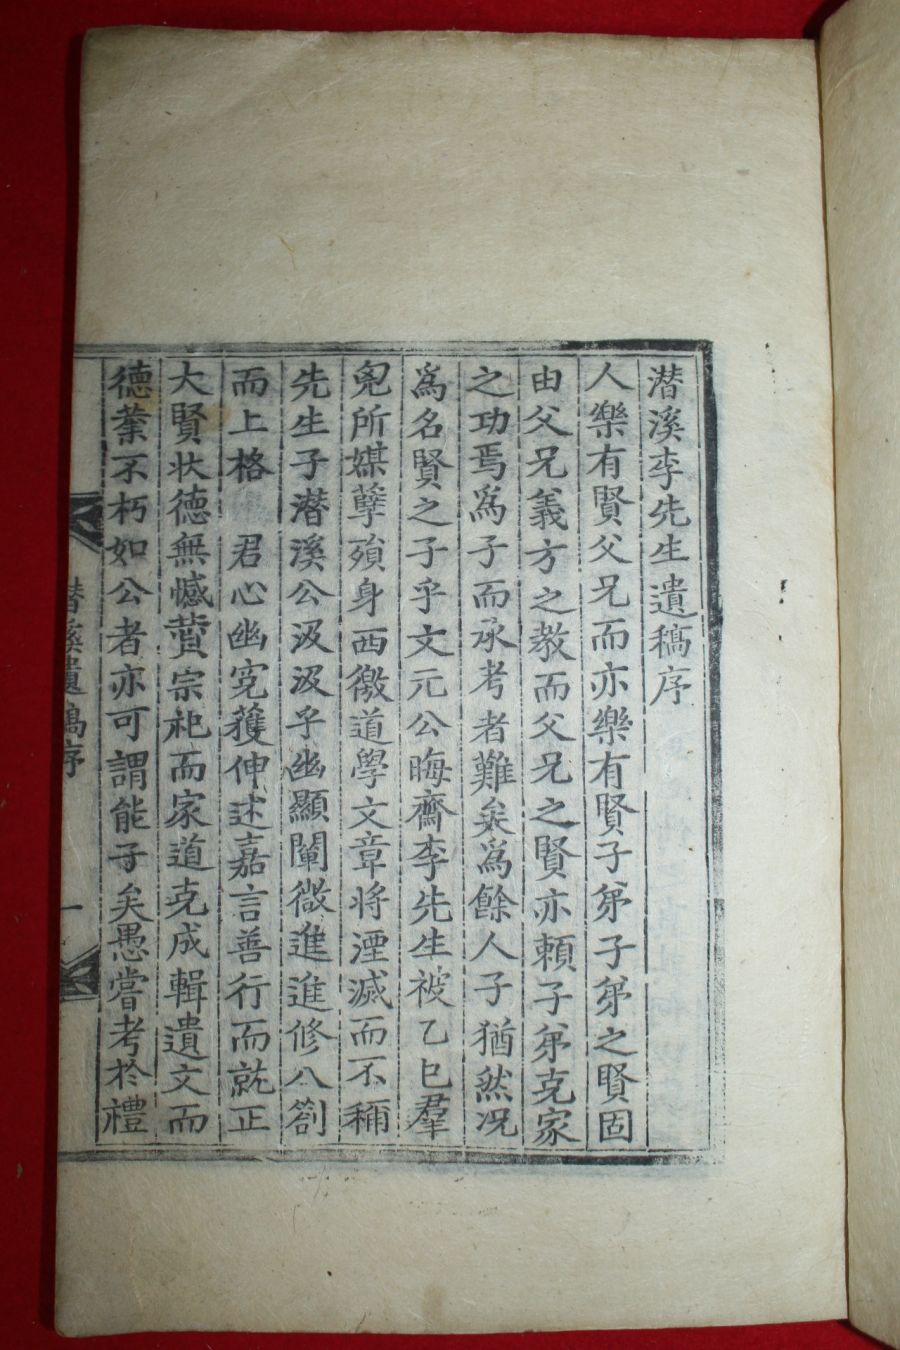 潛溪李先生遺稿序
人樂有賢父兄而亦樂有賢子弟子弟之賢固
由父兄義方之敎而父兄之賢亦賴子弟克家
之功焉爲子而承考者難矣爲餘人子猶然况
爲名賢之子乎文元公晦齋李先生被乙巳羣
兇所媒孽殞身西徼道學文章將湮滅而不稱
先生子潛溪公汲汲乎幽顯闡微進進修八劄
而上格 君心幽寃獲伸述嘉言善行而就正
大賢狀德無憾䝴宗祀而家道克成輯遺文而
德業不朽如公者亦可謂能子矣愚嘗考於禮
潛溪遺稿序
一